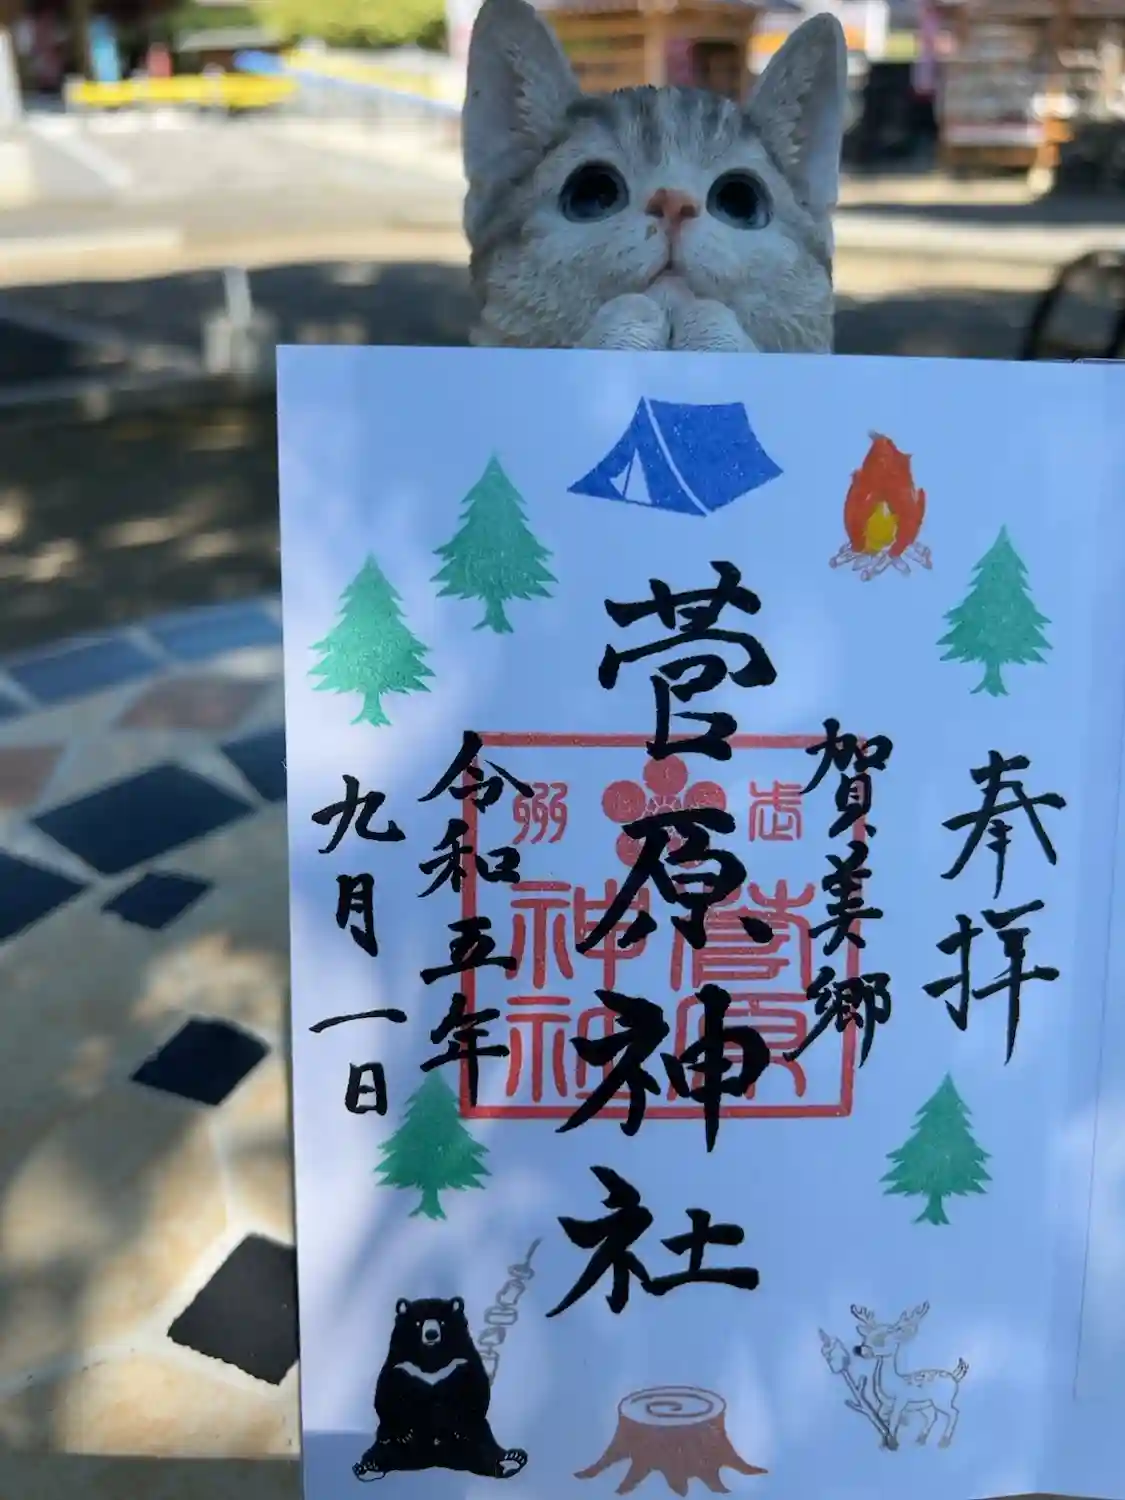 奉拝
賀美郷
菅原神社
武州
菅原
神社
令和五年
九月一日